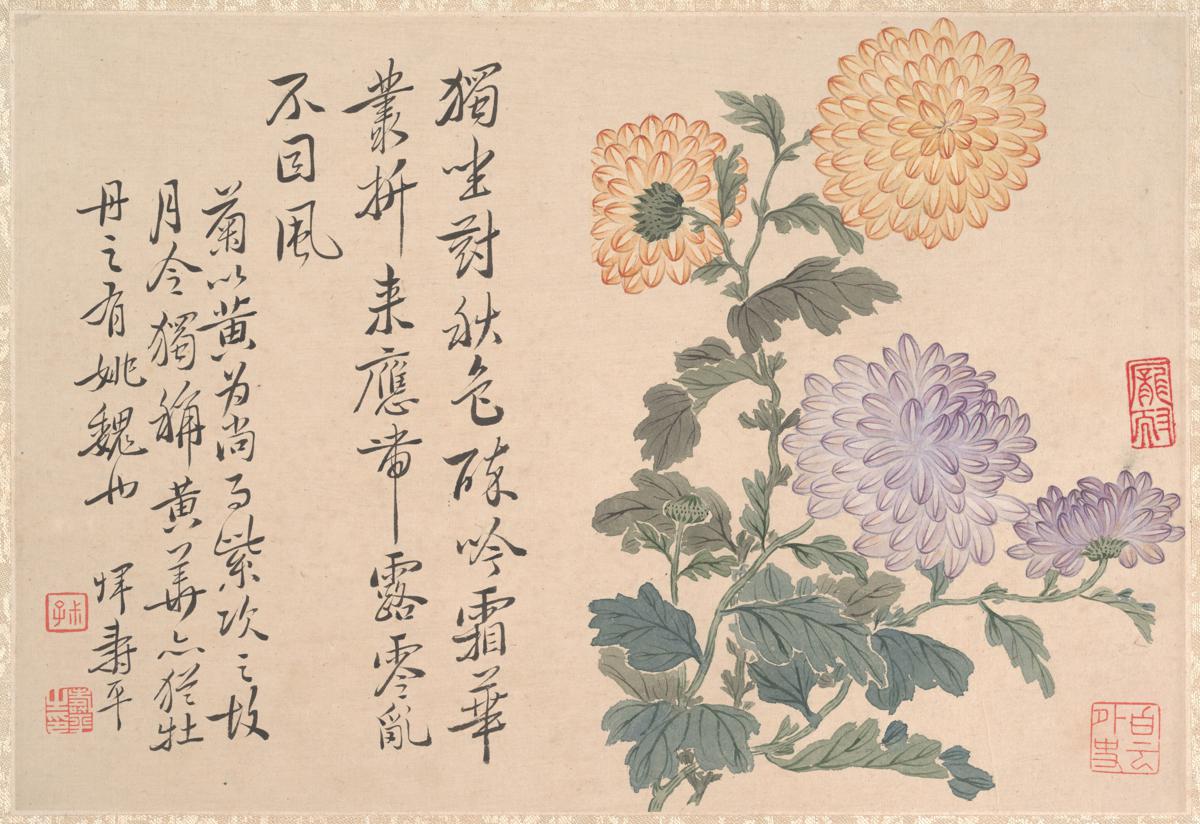 獨坐對秋色醉吟霜華
叢折来應带露零亂
不因風
菊以黄为尚而紫次之故
月令獨稱黄華亦猶牡
丹之有姚魏也 惲壽平
叔子
白云外史